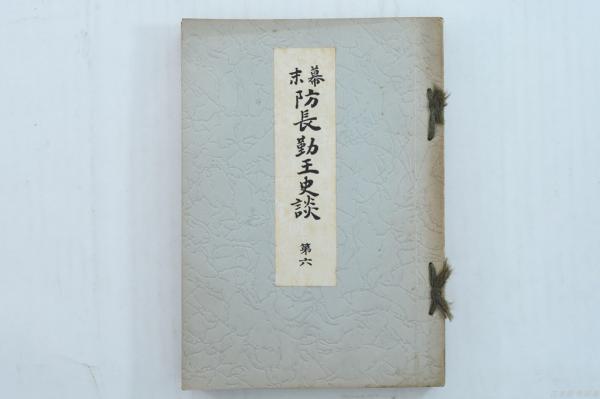 幕末
防長勤王史談
第六